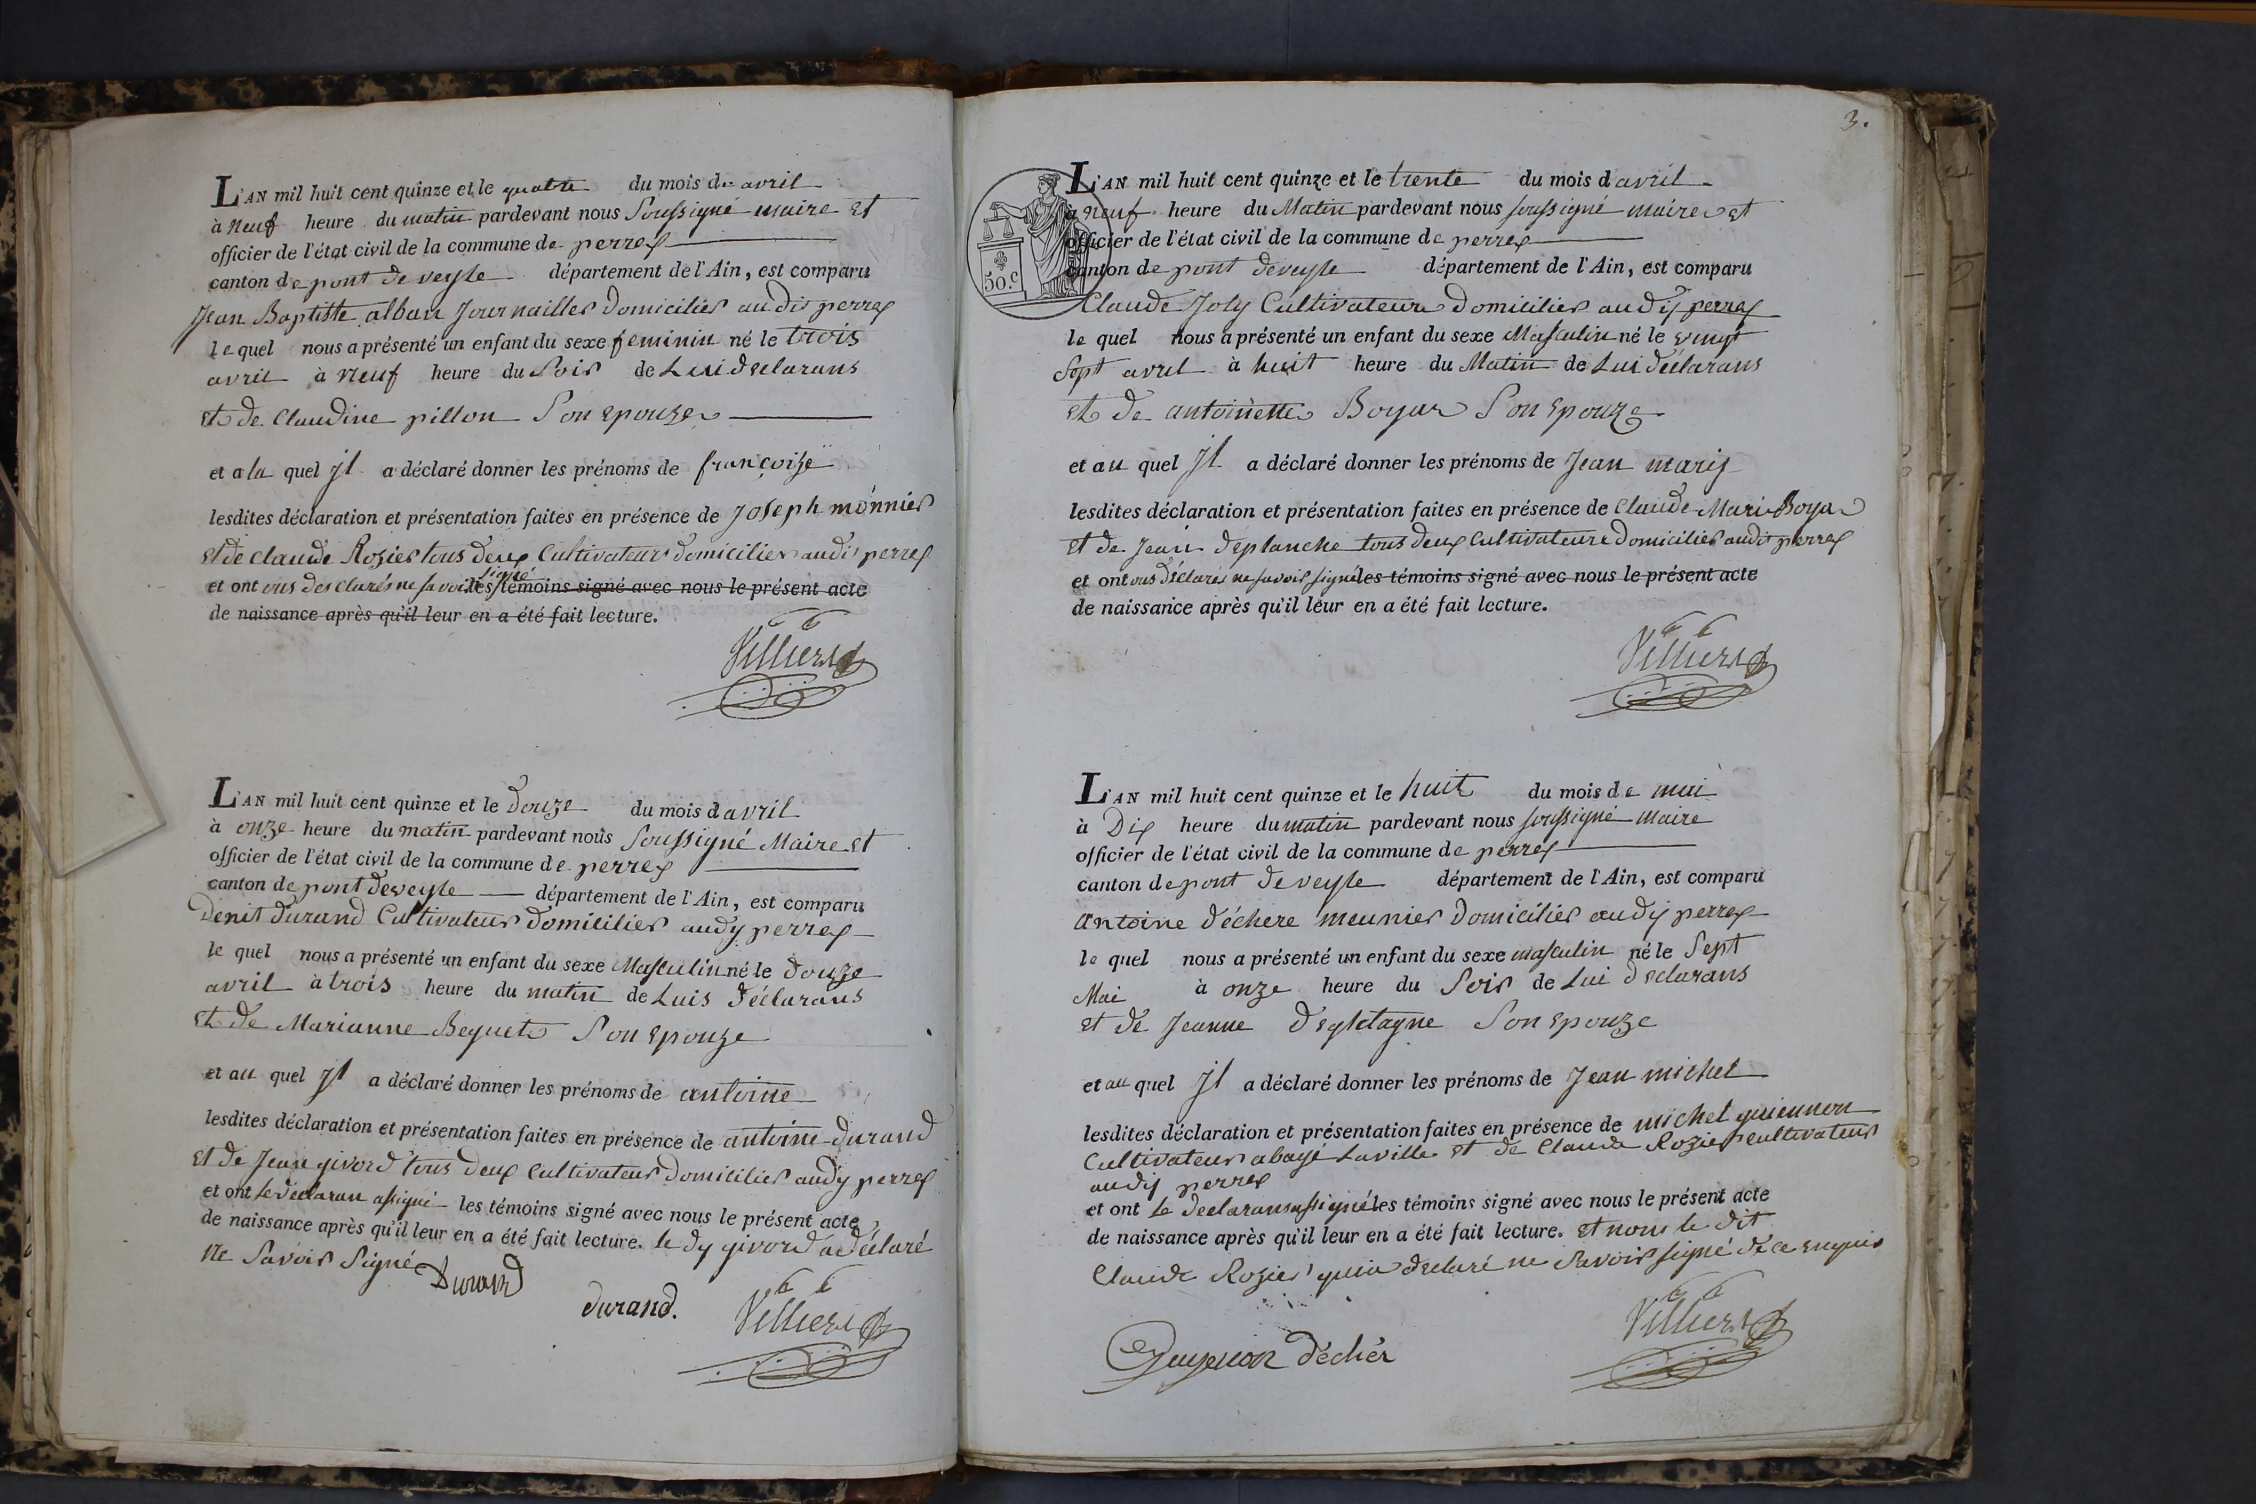 L'AN mil huit cent quinze et le quatre du mois de avril
à neuf heure du matin pardevant nous soussigné maire et
officier de l'état civil de la commune de perrex
canton de pont de veyle département de l'Ain, est comparu
Jean Baptiste alban Journaillier Domicilier audis perrex
le quel nous a présenté un enfant du sexe feminin né le trois
avril à neuf heure du soir de Lui déclarans
et de Claudine pillon son epouze
et a la quel jl a déclaré donner les prénoms de françoize
lesdites déclaration et présentation faites en présence de joseph monnier
et de claude Rozier tous deux Cultivateur domicilier audis perrex
et ont ous desclarés ne savoir signé les témoins signé avec nous le présent acte
de naissance après qu'il leur en a été fait lecture.
Villiers
L'AN mil huit cent quinze et le Douze du mois d avril
à onze heure du matin pardevant nous soussigné Maire et
officier de l'état civil de la commune de perrex
canton de pont deveyle département de l'Ain, est comparu
Denit Durand Cultivateur domicilier audy perrex
le quel nous a présenté un enfant du sexe Masculin né le Douze
avril à trois heure du matin de Luis déclarans
et de Marianne Beguet son epouze
et au quel jl a déclaré donner les prénoms de antoine
lesdites déclaration et présentation faites en présence de antoine durand
et de Jean givord tous deux Cultivateur domicilier audy perrex
et ont le déclaran assigné les témoins signé avec nous le présent acte
de naissance après qu'il leur en a été fait lecture. le dy givord a déclaré
ne savoir signé
Durand
durand.
Villiers
3.
50.c
L'AN mil huit cent quinze et le trente du mois d avril
à neuf heure du Matin pardevant nous soussigné maire et
officier de l'état civil de la commune de perrex
canton de pont deveyle département de l'Ain, est comparu
Claude Joly Cultivateur domicilier audis perrex
le quel nous a présenté un enfant du sexe Masculin né le vingt
sept avril à huit heure du Matin de Lui déclarans
et de antoinette Boyar son epouze
et au quel jl a déclaré donner les prénoms de Jean marij
lesdites déclaration et présentation faites en présence de Claude Marie Boyar
et de Jean deplanche tous deux Cultivateur domicilier audis perrex
et ont ous déclarés ne savoir signé les témoins signé avec nous le présent acte
de naissance après qu'il leur en a été fait lecture.
Villiers
L'AN mil huit cent quinze et le huit du mois de mai
à Dix heure du matin pardevant nous soussigné maire
officier de l'état civil de la commune de perrex
canton de pont deveyle département de l'Ain, est comparu
antoine déchere meunier domicilier audij perrex
le quel nous a présenté un enfant du sexe masculin né le sept
Mai à onze heure du soir de Lui déclarans
et de Jeanne son epouze
et au quel jl a déclaré donner les prénoms de Jean michel
lesdites déclaration et présentation faites en présence de michel guiennon
Cultivateur abagé Laville et de Claude Rozier cultivateur
audij perrex
et ont le declarans assigné les témoins signé avec nous le présent acte
de naissance après qu'il leur en a été fait lecture. et nous le dit
Claude Rozier quia déclaré ne savoir signé de ce enquis
Villiers
déchér